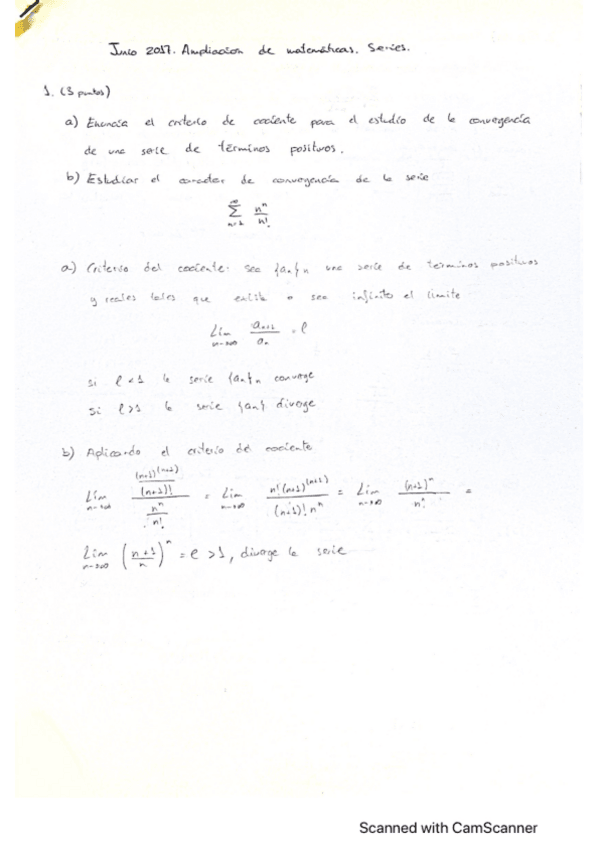 Junio 2017. Ampliacion de matemáticas. Series.
1. (3 puntos)
a) Enuncia el criterio de cociente para el estudio de la convegencia
de una serie de términos positivos.
b) Estudiar el caracter de convegencia de la serie
∞ Σ n=1 n^n / n!
a) Criterio del cociente: sea {an}n una serie de terminos positivos
y reales tales que exista o sea infinito el limite
Lim n→∞ a_{n+1} / a_n = l
si l < 1 la serie {an}n converge
si l > 1 la serie {an} diverge
b) Aplicando el criterio del cociente
Lim n→∞ ((n+1)^(n+1) / (n+1)!) / (n^n / n!) = Lim n→∞ n! (n+1)^(n+1) / (n+1)! n^n = Lim n→∞ (n+1)^n / n^n =
Lim n→∞ ((n+1) / n)^n = e > 1, diverge la serie
Scanned with CamScanner